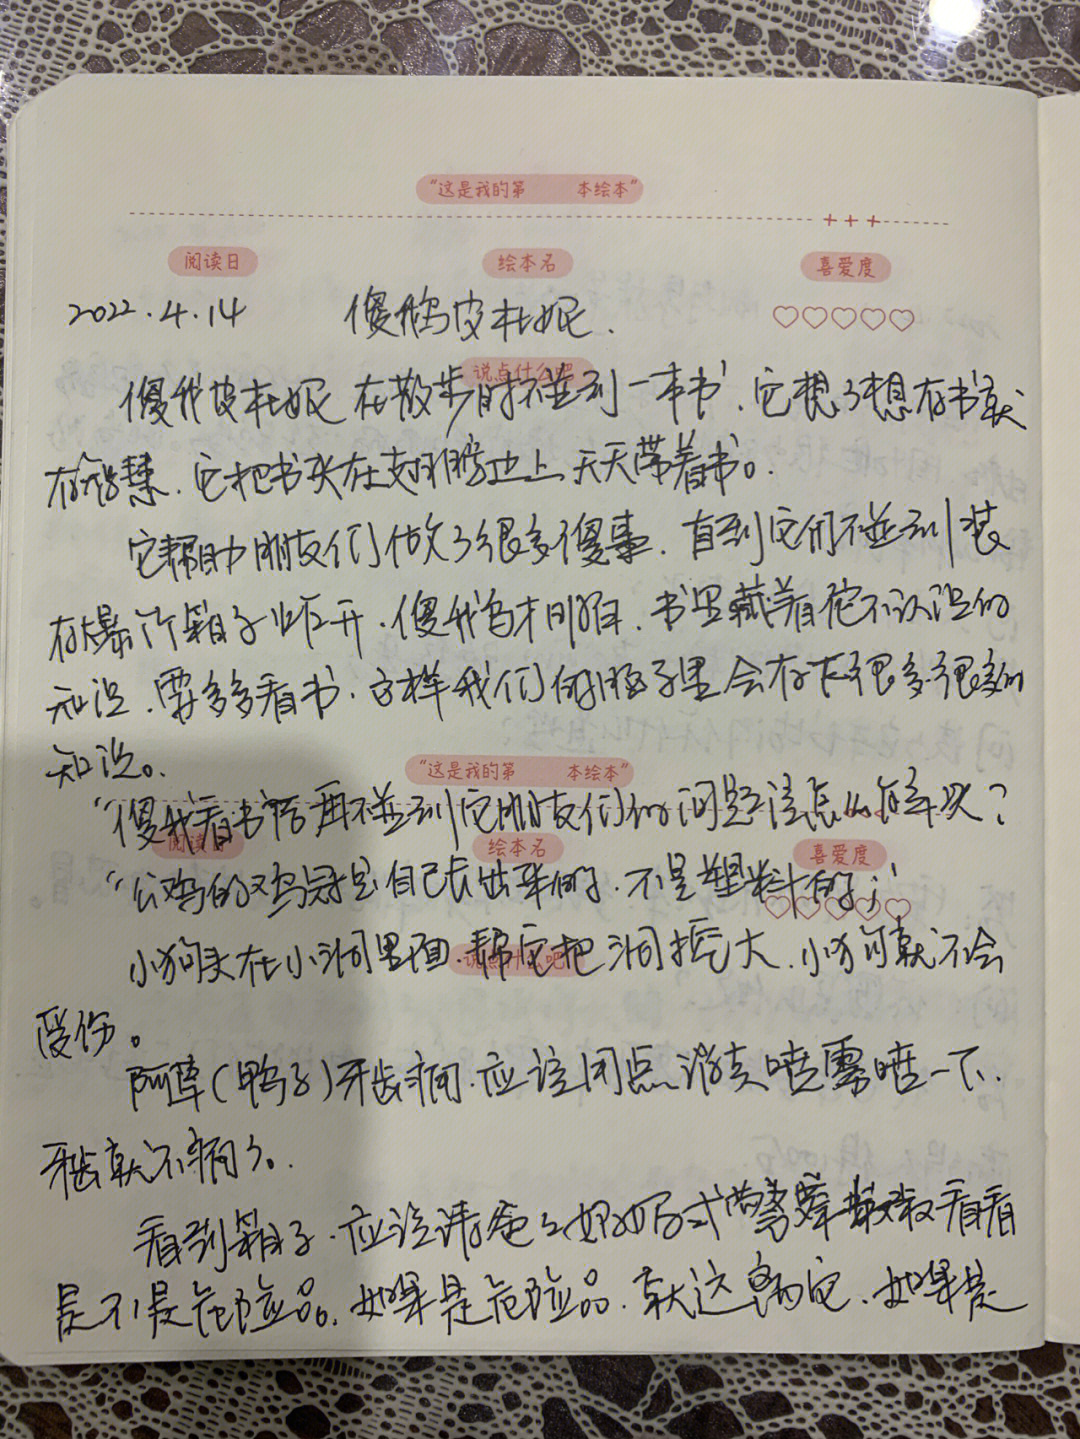 “这是我的第 本绘本”
阅读日 绘本名 喜爱度
2022.4.14 傻鹅皮杜妮.
说点什么吧
傻我皮杜妮 在散步时碰到一本书、它想了想有书就
有智慧、它把书夹在翅膀边上 天天带着书。
它帮助朋友们做了很多傻事、直到它们碰到装
有爆竹箱子炸开.傻我鸟才明白、书里藏着它不认识的
知识、要多多看书、这样我们的脑子里会存在很多很多的
知识。
“这是我的第 本绘本”
“傻我看书后 再碰到它朋友们的问题该怎么解决？
阅读日 绘本名 喜爱度
“公鸡的鸡冠是自己长出来的、不是塑料的；”
小狗头在小洞里面、帮它把洞挖大、小狗就不会
说点什么吧
受伤。
阿 (鸭子)牙齿痛.应该用点 喷雾喷一下.
牙齿就不痛了。
看到箱子.应该请爸爸妈妈 警察 看看
是不是危险品。如果是危险品、就远离它、如果是